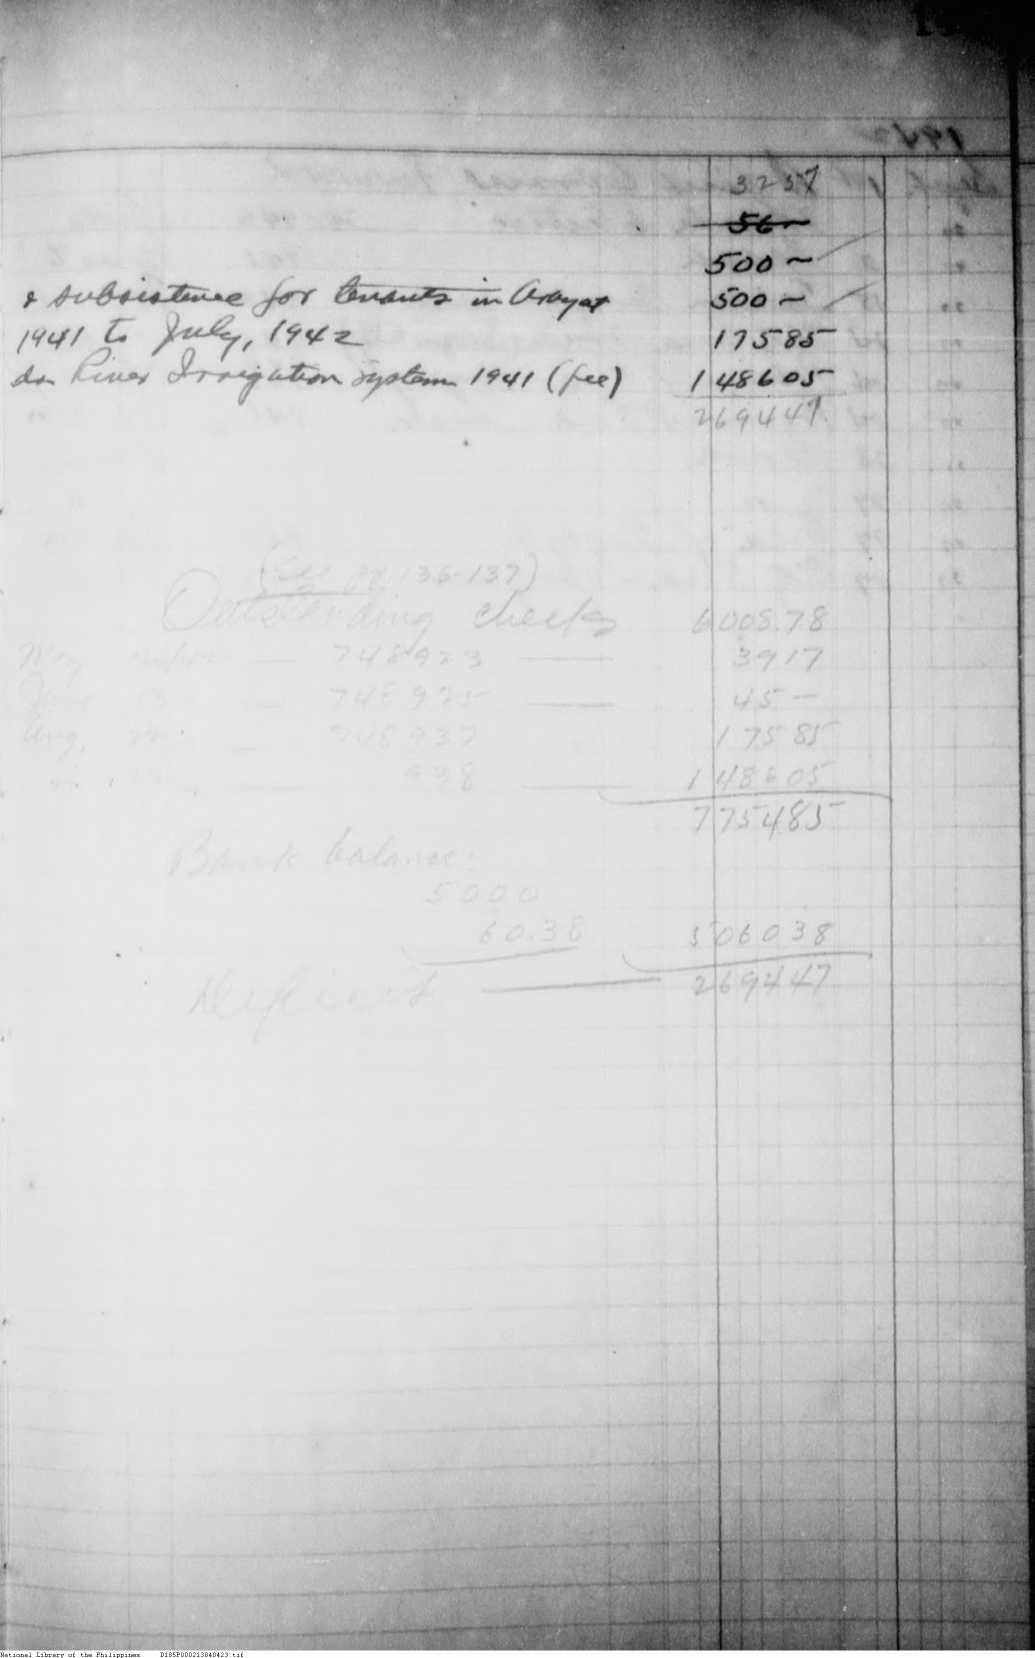 3257
56 -
500 ~
& subsistence for tenants in Arayat 500 ~
1941 to July, 1942 17585
River Irrigation System 1941 (fee) 148605
269447
(See pg 136-137)
Outstanding checks 6008.78
May — 748923 — 3917
June — 748925 — 45 —
Aug. — 748937 17585
938 — 148605
775485
Bank balance:
5000
60.38 506038
Deficit — 269447
National Library of the Philippines D185P000213040423.tif